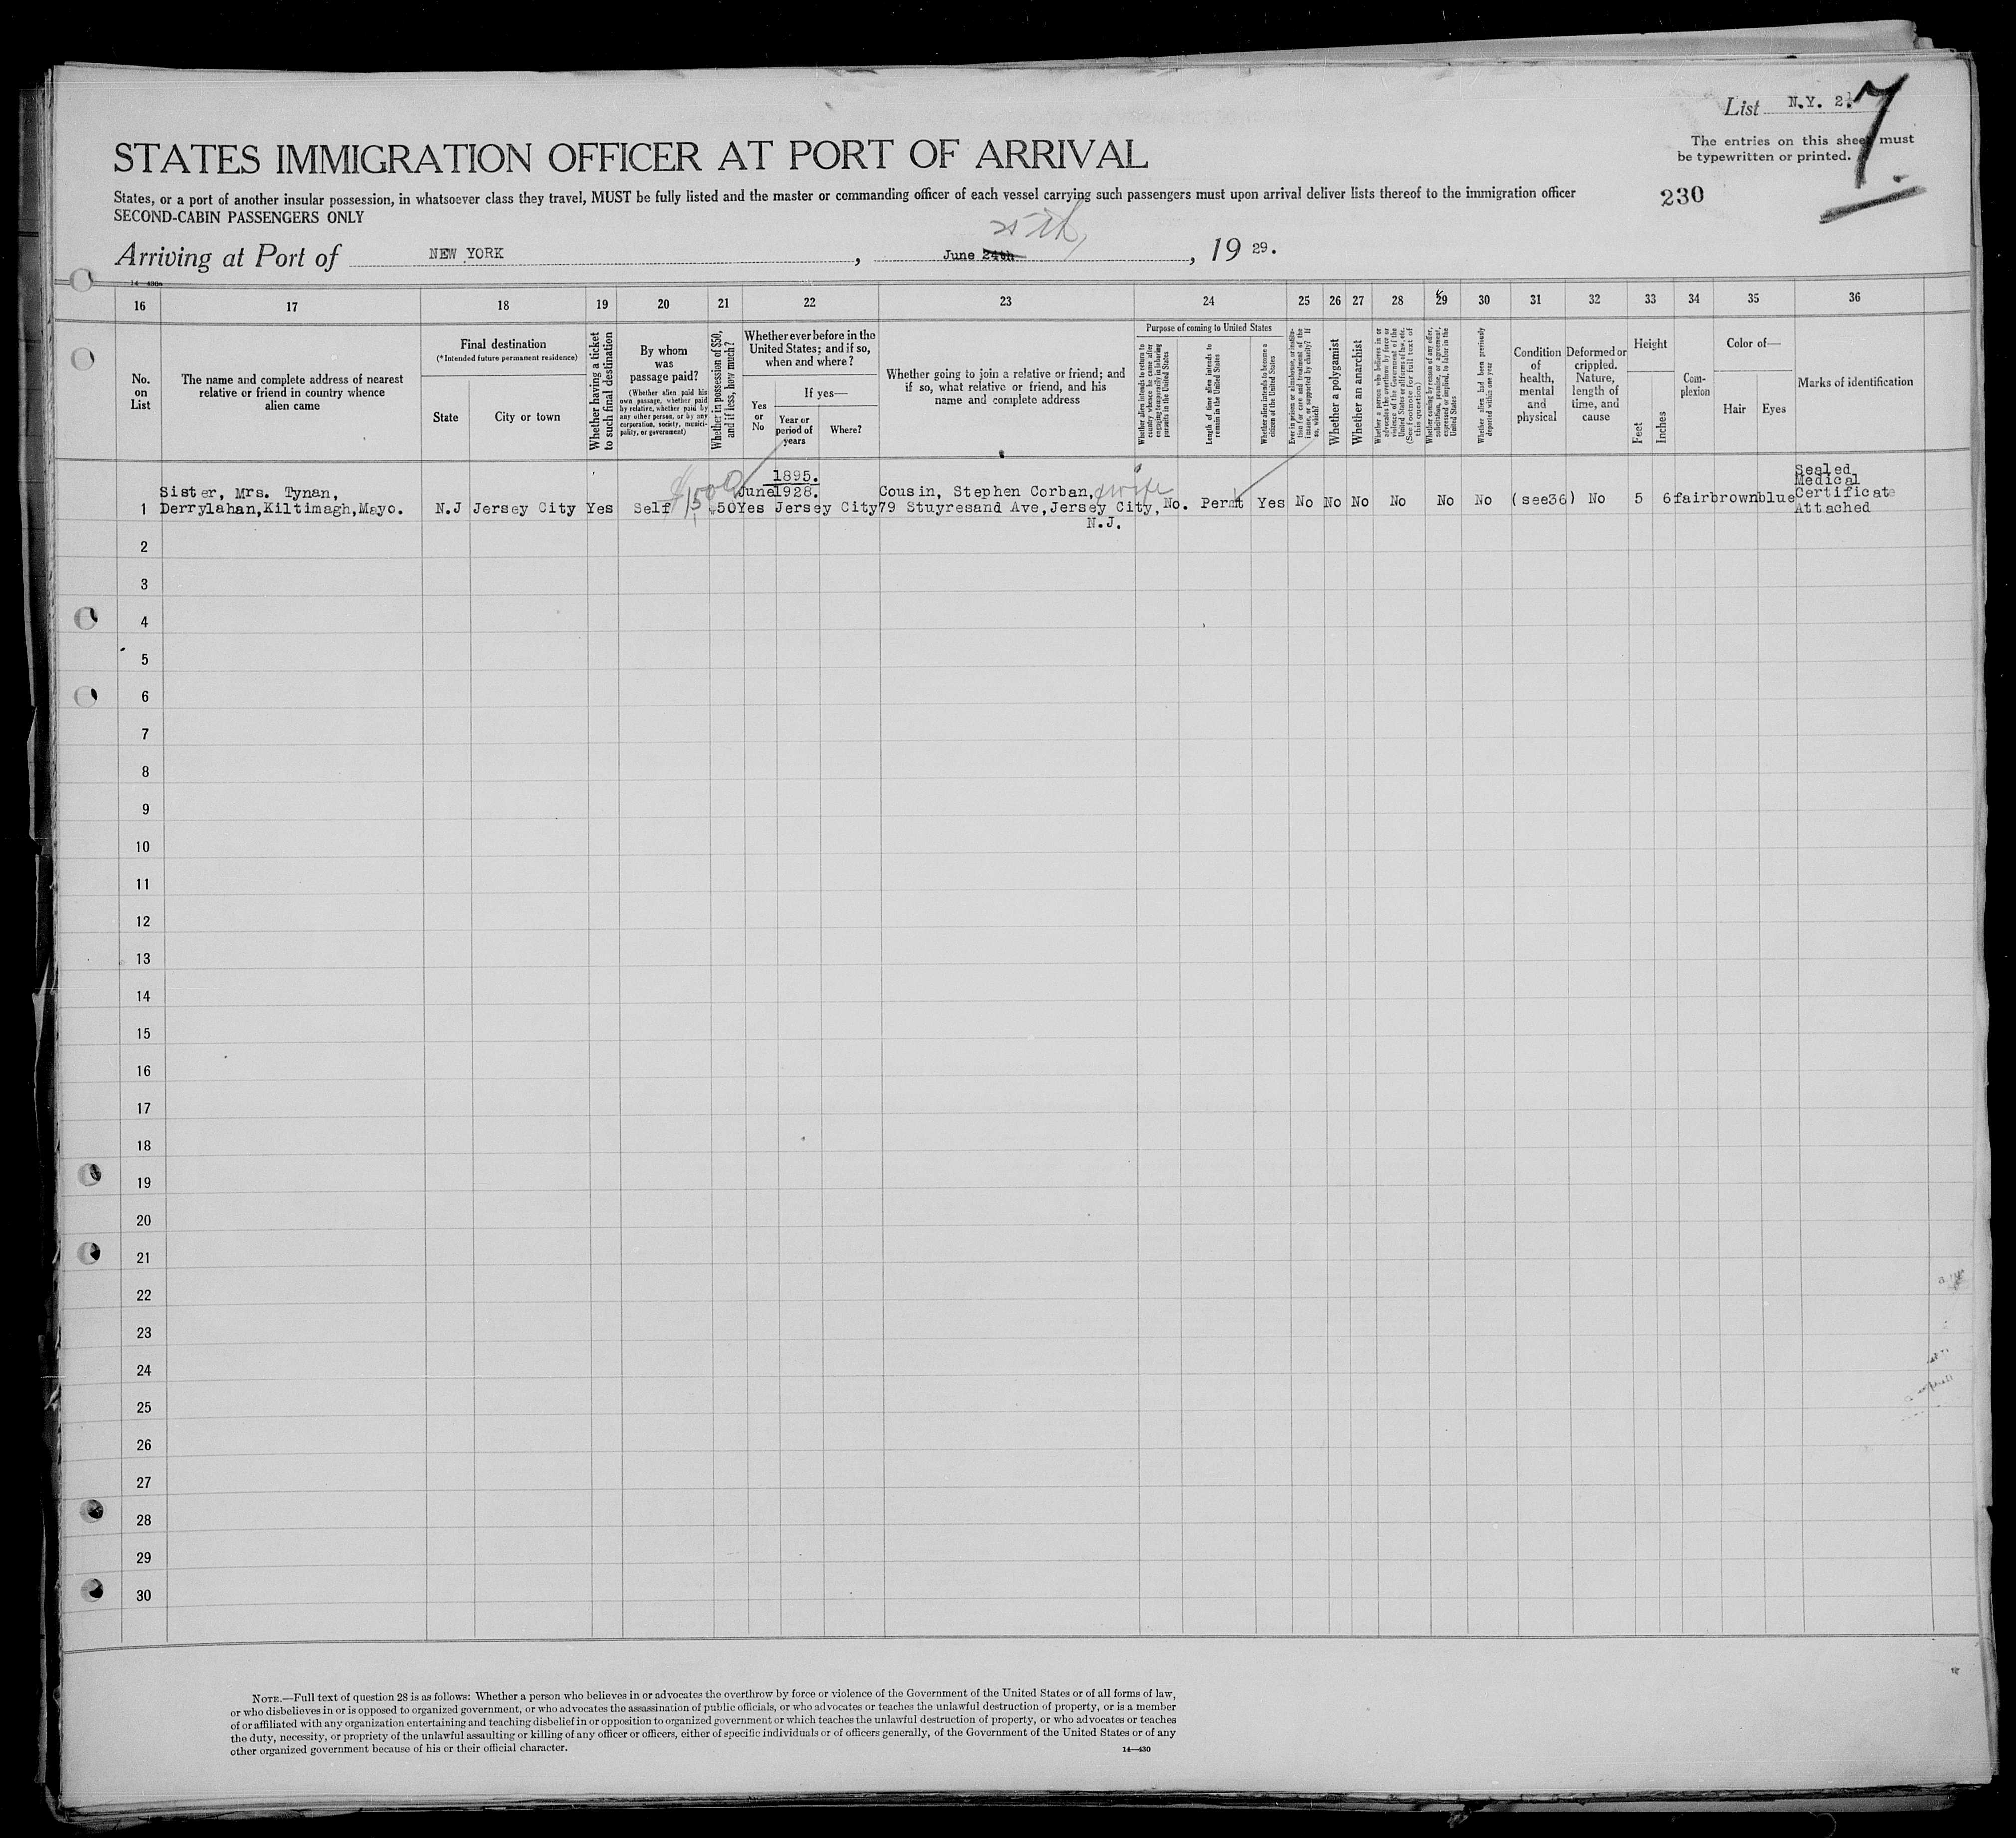 List N.Y. 2
7.
The entries on this sheet must
be typewritten or printed.
230
STATES IMMIGRATION OFFICER AT PORT OF ARRIVAL
States, or a port of another insular possession, in whatsoever class they travel, MUST be fully listed and the master or commanding officer of each vessel carrying such passengers must upon arrival deliver lists thereof to the immigration officer
SECOND-CABIN PASSENGERS ONLY
25th
Arriving at Port of NEW YORK , June 24th , 19 29.
14—430a
16 17 18 19 20 21 22 23 24 25 26 27 28 29 30 31 32 33 34 35 36
No.
on
List
The name and complete address of nearest
relative or friend in country whence
alien came
Final destination
(*Intended future permanent residence)
State City or town
Whether having a ticket
to such final destination
By whom
was
passage paid?
(Whether alien paid his
own passage, whether paid
by relative, whether paid by
any other person, or by any
corporation, society, munici-
pality, or government)
Whether in possession of $50,
and if less, how much?
Whether ever before in the
United States; and if so,
when and where?
Yes
or
No
If yes—
Year or
period of
years
Where?
Whether going to join a relative or friend; and
if so, what relative or friend, and his
name and complete address
Purpose of coming to United States
Whether alien intends to return to
country whence he came after
engaging temporarily in laboring
pursuits in the United States
Length of time alien intends to
remain in the United States
Whether alien intends to become a
citizen of the United States
Ever in prison or almshouse, or institu-
tion for care and treatment of the
insane, or supported by charity? If
so, which?
Whether a polygamist
Whether an anarchist
Whether a person who believes in or
advocates the overthrow by force or
violence of the Government of the
United States or all forms of law, etc.
(See footnote for full text of
this question.)
Whether coming by reason of any offer,
solicitation, promise, or agreement,
expressed or implied, to labor in the
United States
Whether alien had been previously
deported within one year
Condition
of
health,
mental
and
physical
Deformed or
crippled.
Nature,
length of
time, and
cause
Height
Feet
Inches
Com-
plexion
Color of—
Hair Eyes
Marks of identification
1 Sister, Mrs. Tynan,
Derrylahan,Kiltimagh,Mayo.
N.J Jersey City Yes Self $1500 $50 Yes
1895.
June1928.
Jersey City
Cousin, Stephen Corban, wife
79 Stuyresand Ave,Jersey City,
N.J.
No. Permt Yes No No No No No No (see36) No 5 6 fair brown blue
Sealed
Medical
Certificate
Attached
2
3
4
5
6
7
8
9
10
11
12
13
14
15
16
17
18
19
20
21
22
23
24
25
26
27
28
29
30
NOTE.—Full text of question 28 is as follows: Whether a person who believes in or advocates the overthrow by force or violence of the Government of the United States or of all forms of law,
or who disbelieves in or is opposed to organized government, or who advocates the assassination of public officials, or who advocates or teaches the unlawful destruction of property, or is a member
of or affiliated with any organization entertaining and teaching disbelief in or opposition to organized government or which teaches the unlawful destruction of property, or who advocates or teaches
the duty, necessity, or propriety of the unlawful assaulting or killing of any officer or officers, either of specific individuals or of officers generally, of the Government of the United States or of any
other organized government because of his or their official character.
14—430